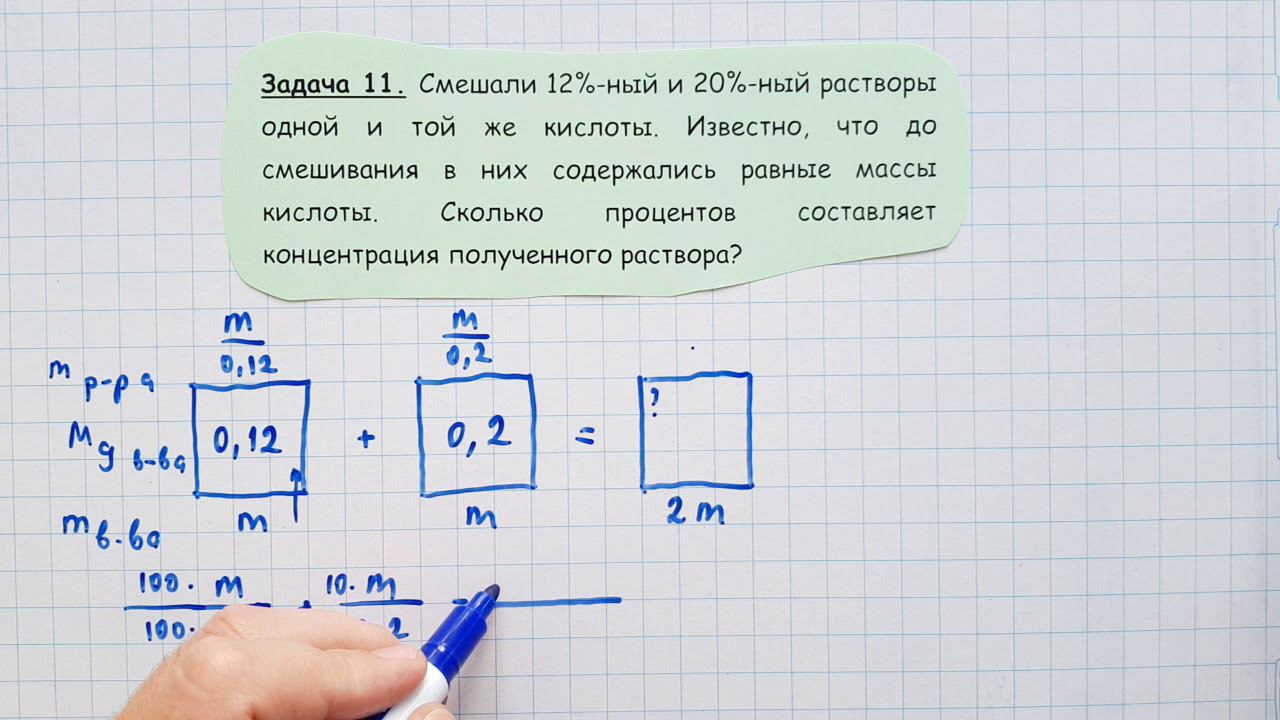 Задача 11. Смешали 12%-ный и 20%-ный растворы
одной и той же кислоты. Известно, что до
смешивания в них содержались равные массы
кислоты. Сколько процентов составляет
концентрация полученного раствора?
m/0,12 m/0,2
m р-ра
M д в-ва 0,12 + 0,2 = ?
m в-ва m m 2m
100· m 10· m
100· 2